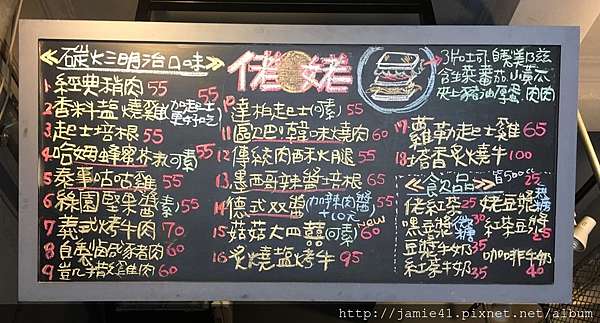 ≪碳火三明治口味≫
1. 經典豬肉 55
2 香料鹽燒雞(加起士更好吃) 55
3. 起士培根 55
4. 哈姆蜂蜜芥末(可素) 55
5 泰事咕咕雞 55
6 綠園堅果醬(素) 55
7 義式烤牛肉 70
8 自製滷豬肉 60
9 凱薩雞肉 60
佬姥
10 達柏起士(可素) 55
11 歐巴韓味燒肉 60
12 傳統肉酥火腿 55
13 墨西哥辣醬培根 65
14 德式双醬(咖啡肉醬+10元) 55
15 菇菇大四囍(可素) 60 new
16 炙燒鹽烤牛 95
3片土司. 自製美乃滋
含生菜番茄.小黃瓜
夾上豬油厚蛋.肉肉
17. 蘿勒起士雞 65
18. 塔香炙燒牛 100
≪飲品≫皆500cc
佬紅茶 25 姥豆漿 25
黑豆漿 30 紅茶豆漿 25
豆漿牛奶 35
紅茶牛奶 35 咖啡牛奶 40
http://jamie41.pixnet.net/album